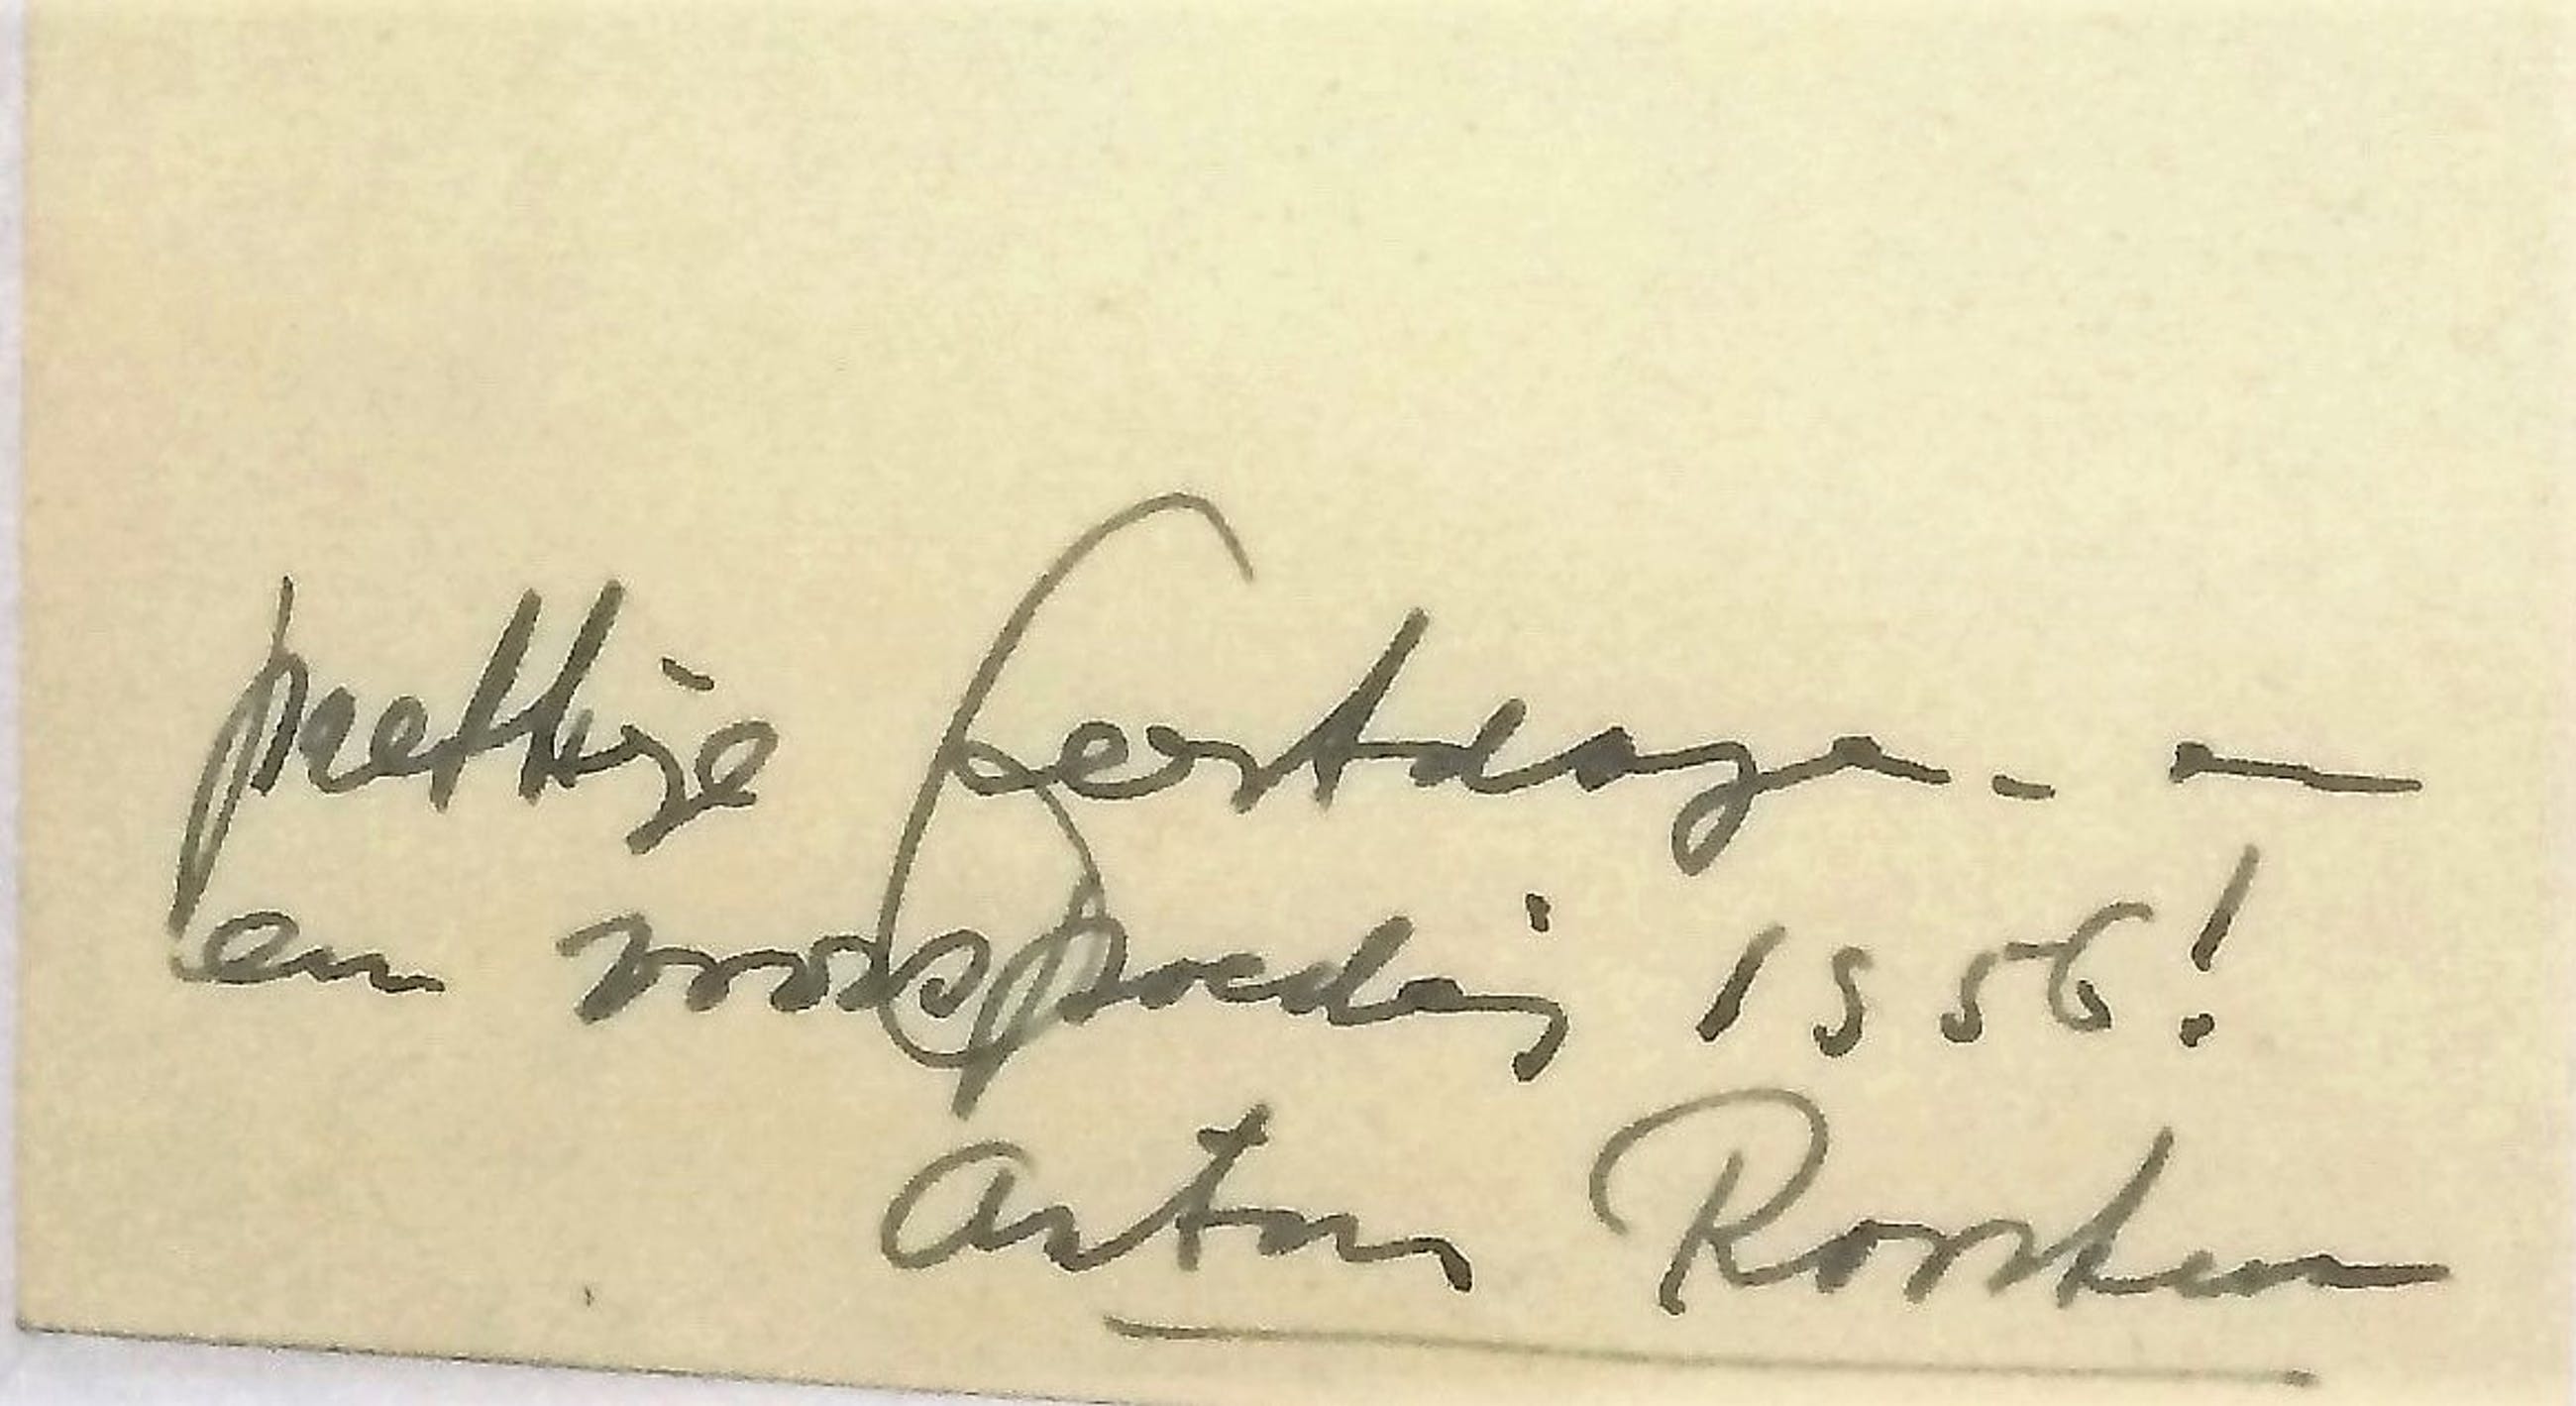 prettige kerstdagen - en
een voorspoedig 1956!
Anton Rooskens